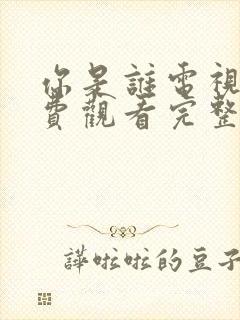 你是誰電視
費觀看完整
譁啦啦的豆子